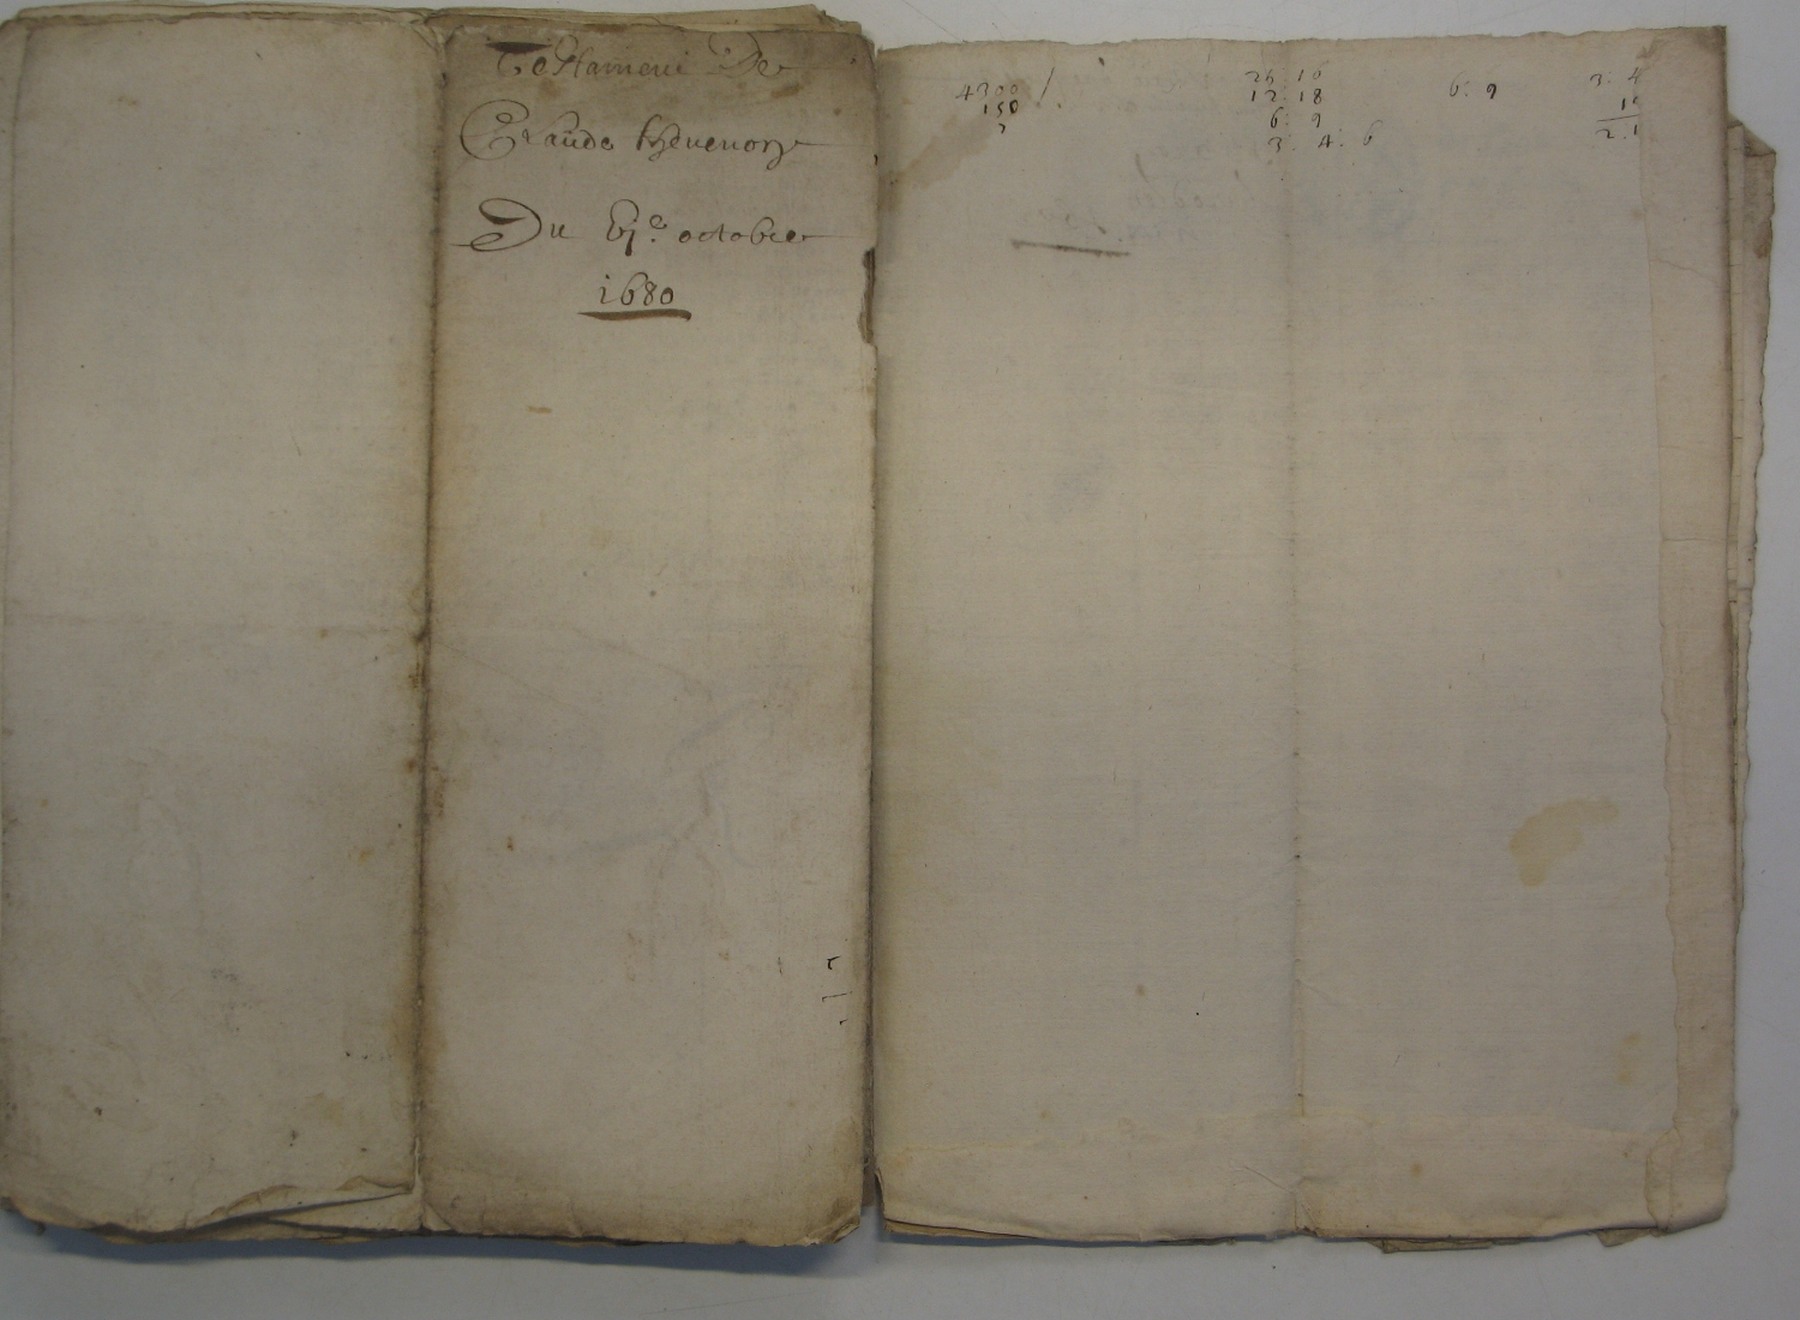 Testament De
Claude Thevenon
Du vj.e octobre
1680
4300 /
150
26 . 16
12 . 18
6 . 9
3 . 4 . 6
6 . 9
3 . 4
2 . 1